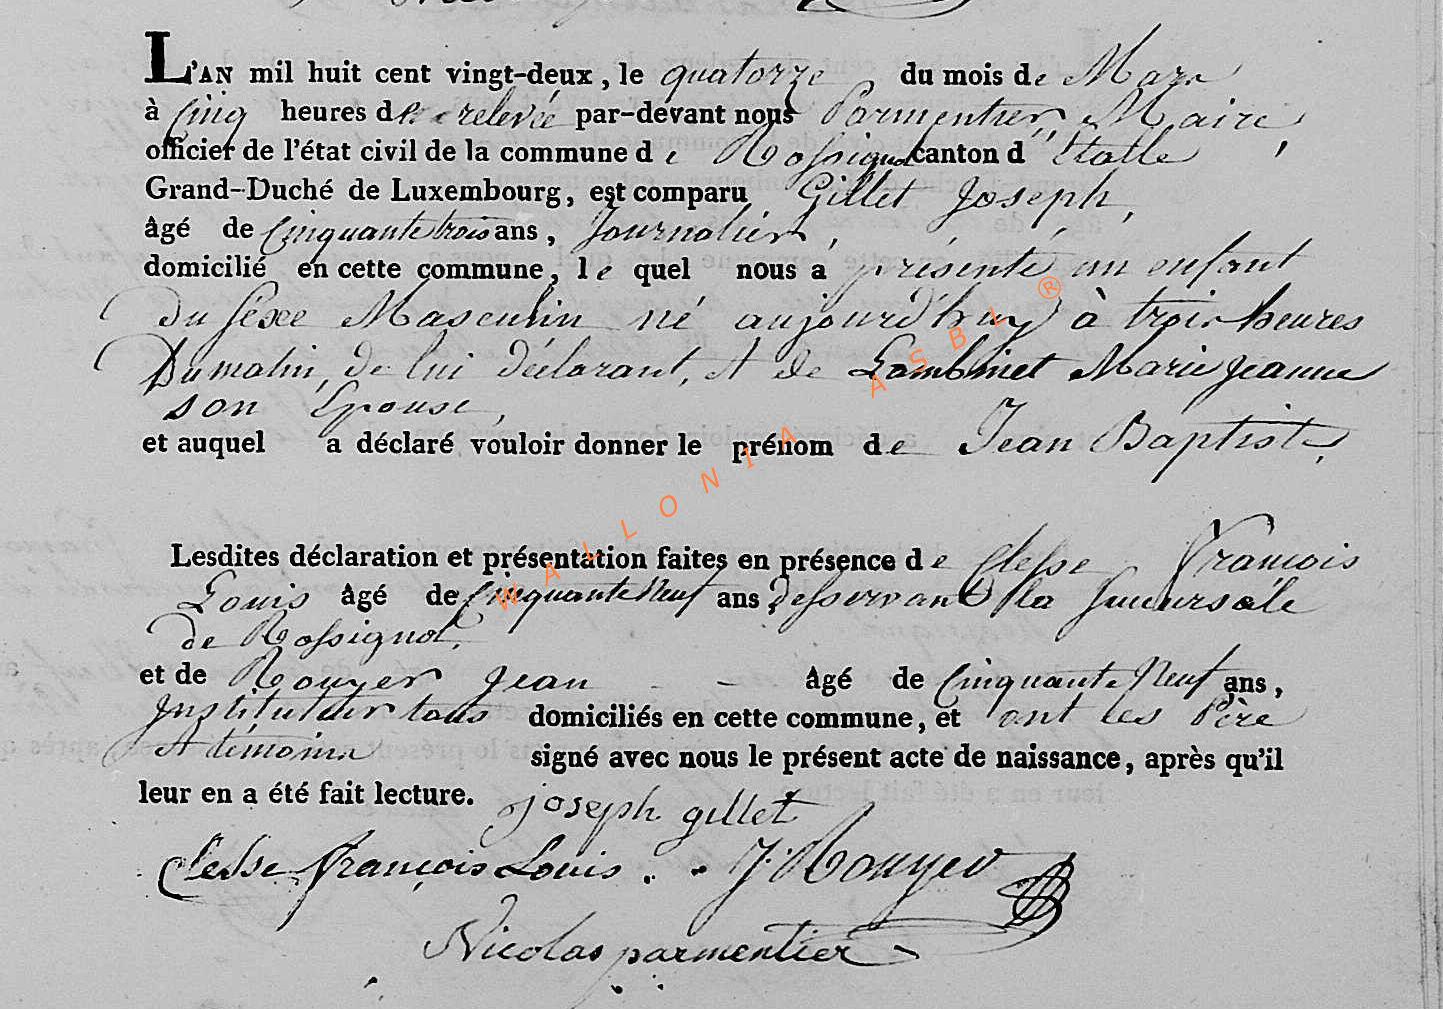 L'AN mil huit cent vingt-deux, le quatorze du mois de Mars
à Cinq heures de relevée par-devant nous Parmentier, Maire,
officier de l'état civil de la commune de Rossignol canton d'Etalle
Grand-Duché de Luxembourg, est comparu Gillet Joseph,
âgé de Cinquante trois ans, Journalier,
domicilié en cette commune, le quel nous a présenté un enfant
Du sexe Masculin né aujourd'huy à trois heures
Du matin, de lui déclarant, et de Lambinet Marie Jeanne
son Epouse,
et auquel a déclaré vouloir donner le prénom de Jean Baptiste,
Lesdites déclaration et présentation faites en présence de Clesse François
Louis âgé de Cinquante Neuf ans Desservant la Succursale
de Rossignol,
et de Rouyer Jean - - âgé de Cinquante Neuf ans,
Instituteur tous domiciliés en cette commune, et ont les Père
et témoins signé avec nous le présent acte de naissance, après qu'il
leur en a été fait lecture.
joseph gillet
Clesse françois Louis. J: Rouyer
Nicolas parmentier
WALLONIA ASBL ®